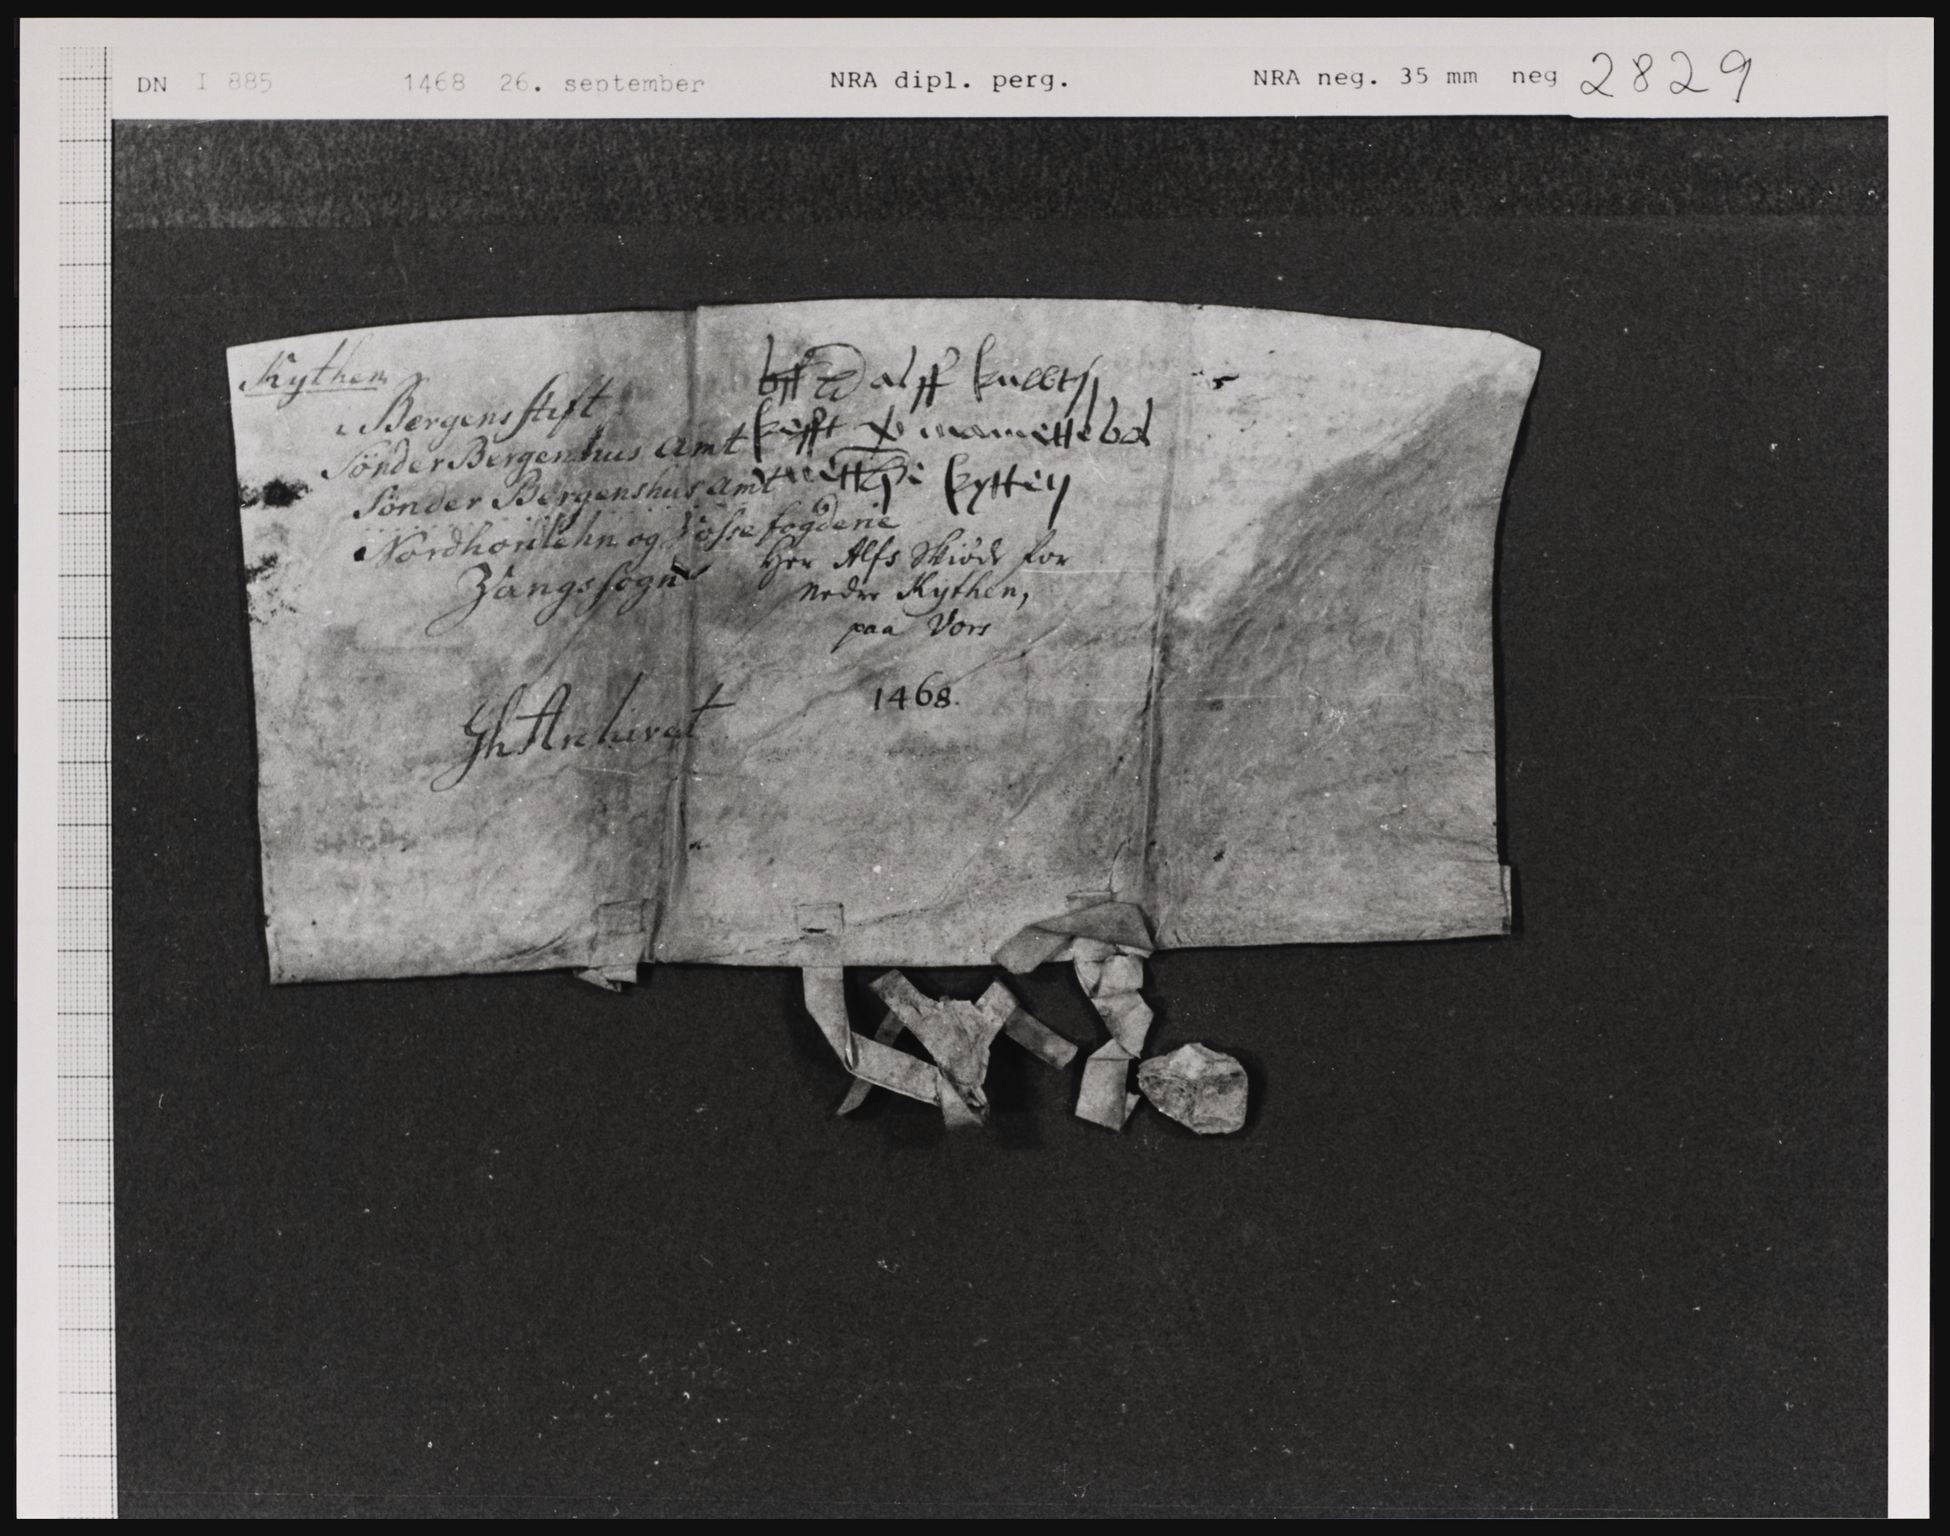 DN I 885 1468 26. september NRA dipl. perg. NRA neg. 35 mm neg 2829
Kythen
i Bergens stift
Sönder Bergenhus amt
Sönder Bergenshus amt
Nordhorlehn og Vosse fogderie
Vangs sogn
Gh Archivet
alff
kytten
Her Alfs Skiöde for
Nedre Kythen,
paa Vors
1468.